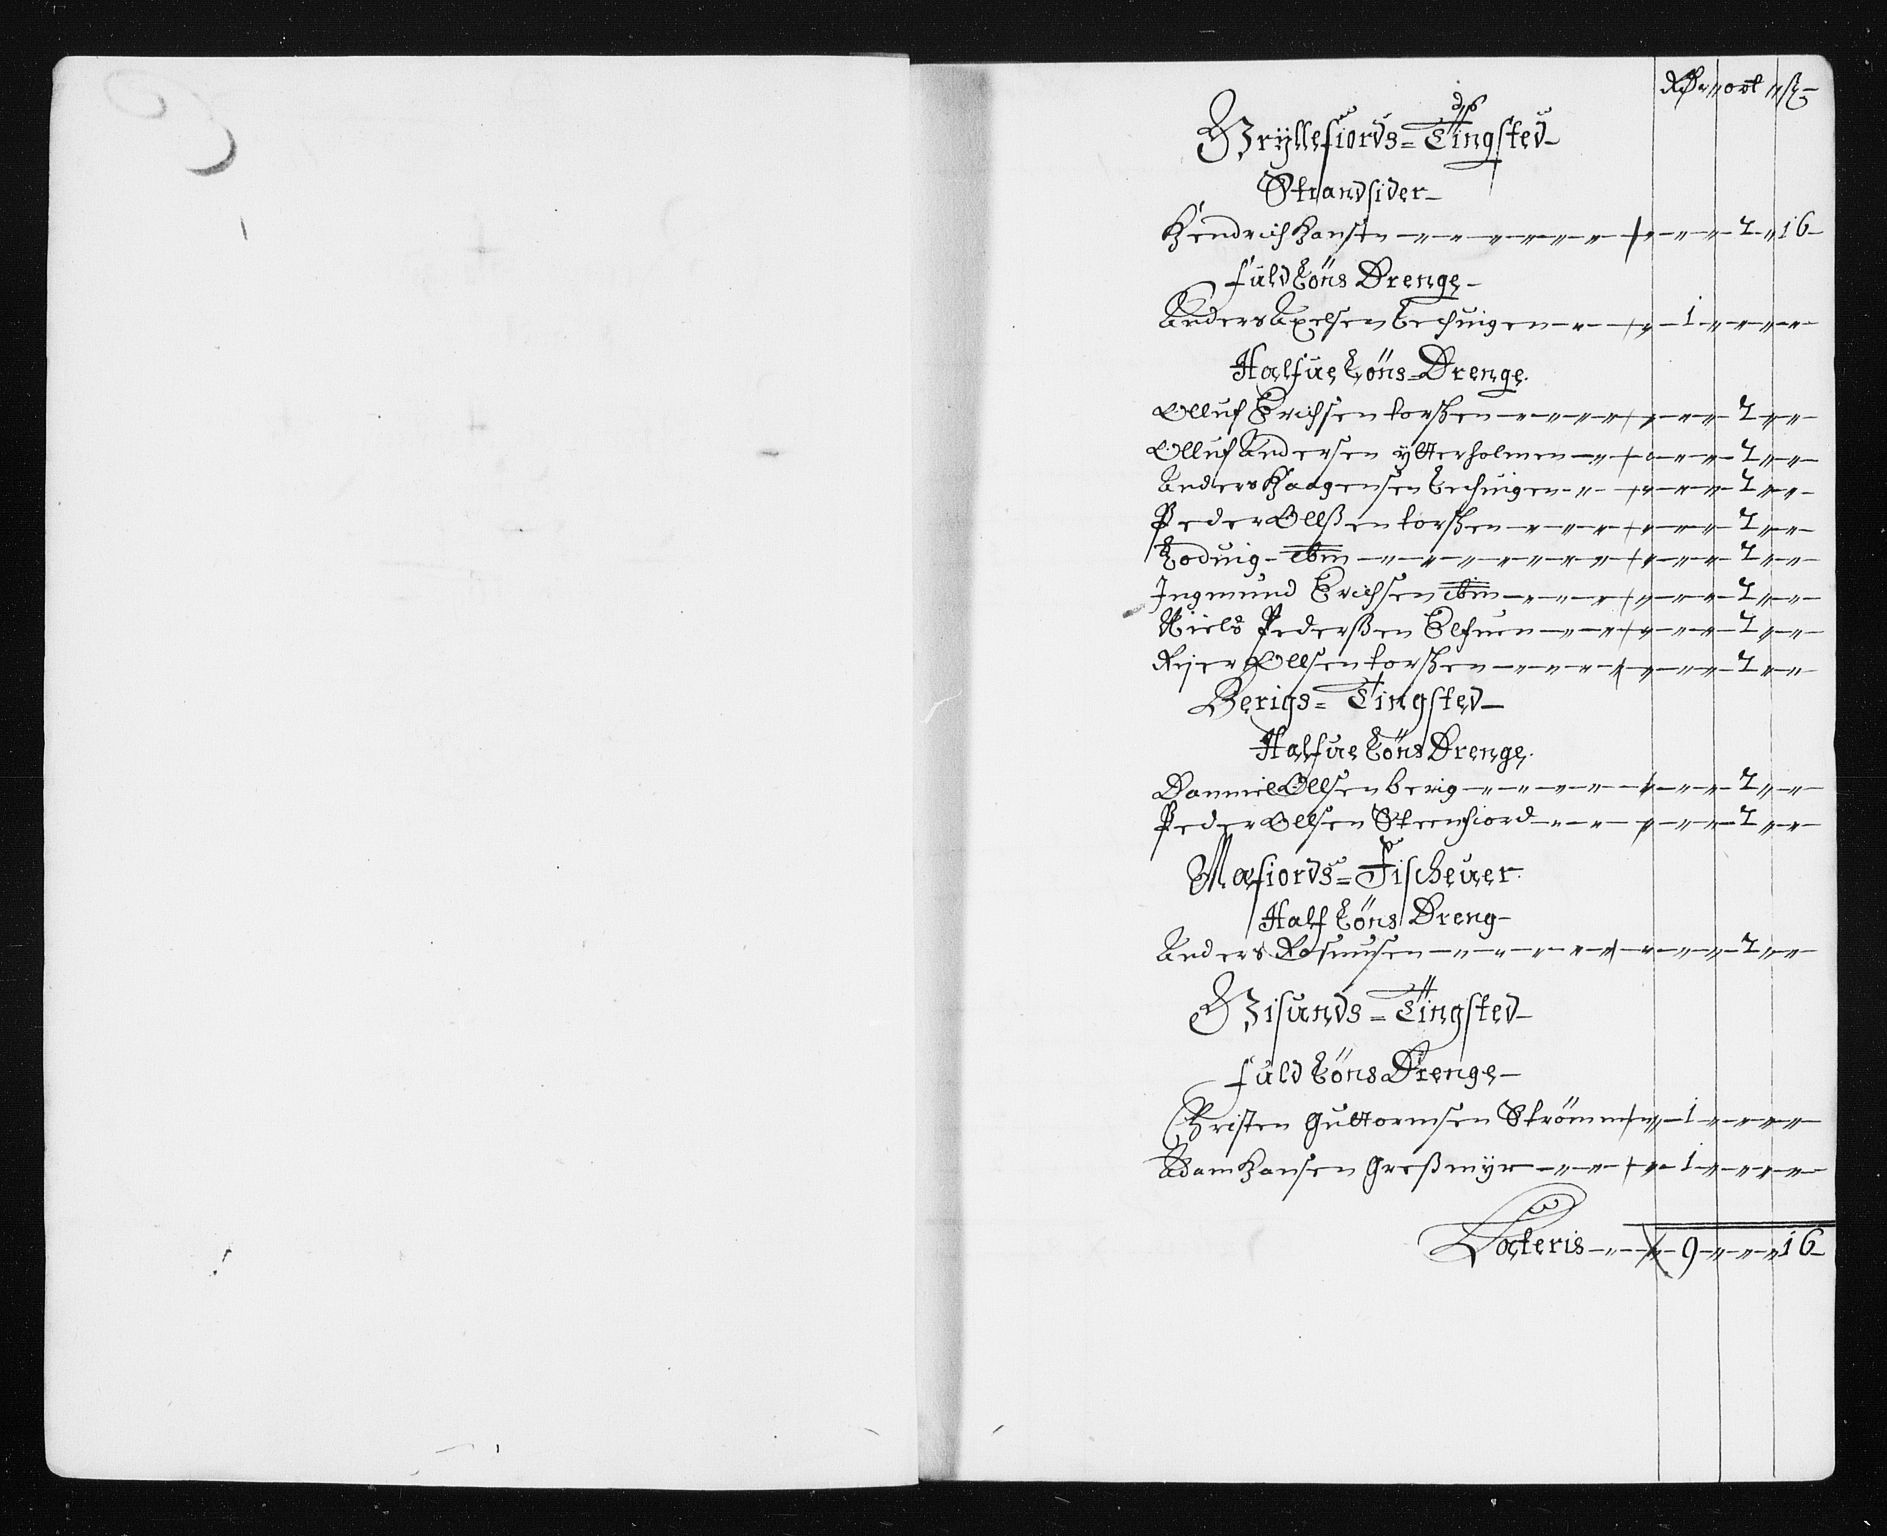 Rdr ort ß
Gryllefiords=Tingsted
Strandsider
Hendrich Hansen 2 16
fuld Löns Drenge
Anders Axelsen Lechuigen 1
Halfue Löns=Drenge
Olluf Erichsen torshen 2
Olluf Andersen ytterholmen 2
Anders Haagensen Lechuigen 2
Peder Ollßen torshen 2
Loduig ibm 2
Ingmund Erichsen ibm 2
Niels Pederßen Elfuen 2
Reier Ollsen torshen 2
Berigs=Tingsted
Halfue Löns Drenge
Danniel Ollsen berig 2
Peder Ollsen Steenfiord 2
Mafiords=Fischeuer
Half Löns Dreng
Anders Rasmusen 2
Gisunds=Tingsted
fuld Löns Drenge
Christen Guttormsen Strömmen 1
Adam Hansen Greßmyr 1
Lateris 9 16